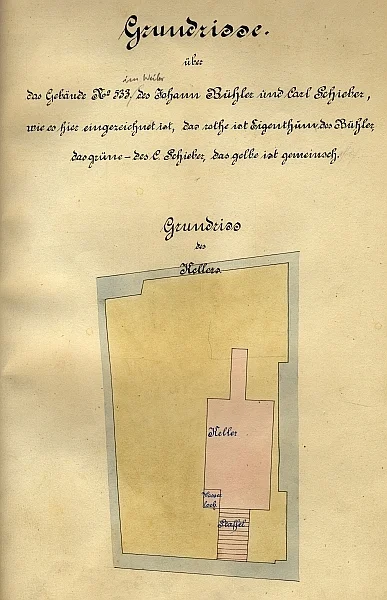 Grundrisse.
über
im Weiler
das Gebäude No 333, des Johann Bühler und Carl Schieber,
wie es hier eingezeichnet ist, das rothe ist Eigenthum des Bühler,
das grüne - des C. Schieber, das gelbe ist gemeinsch.
Grundriss
des
Kellers
Keller
Wasser
loch
Staffel